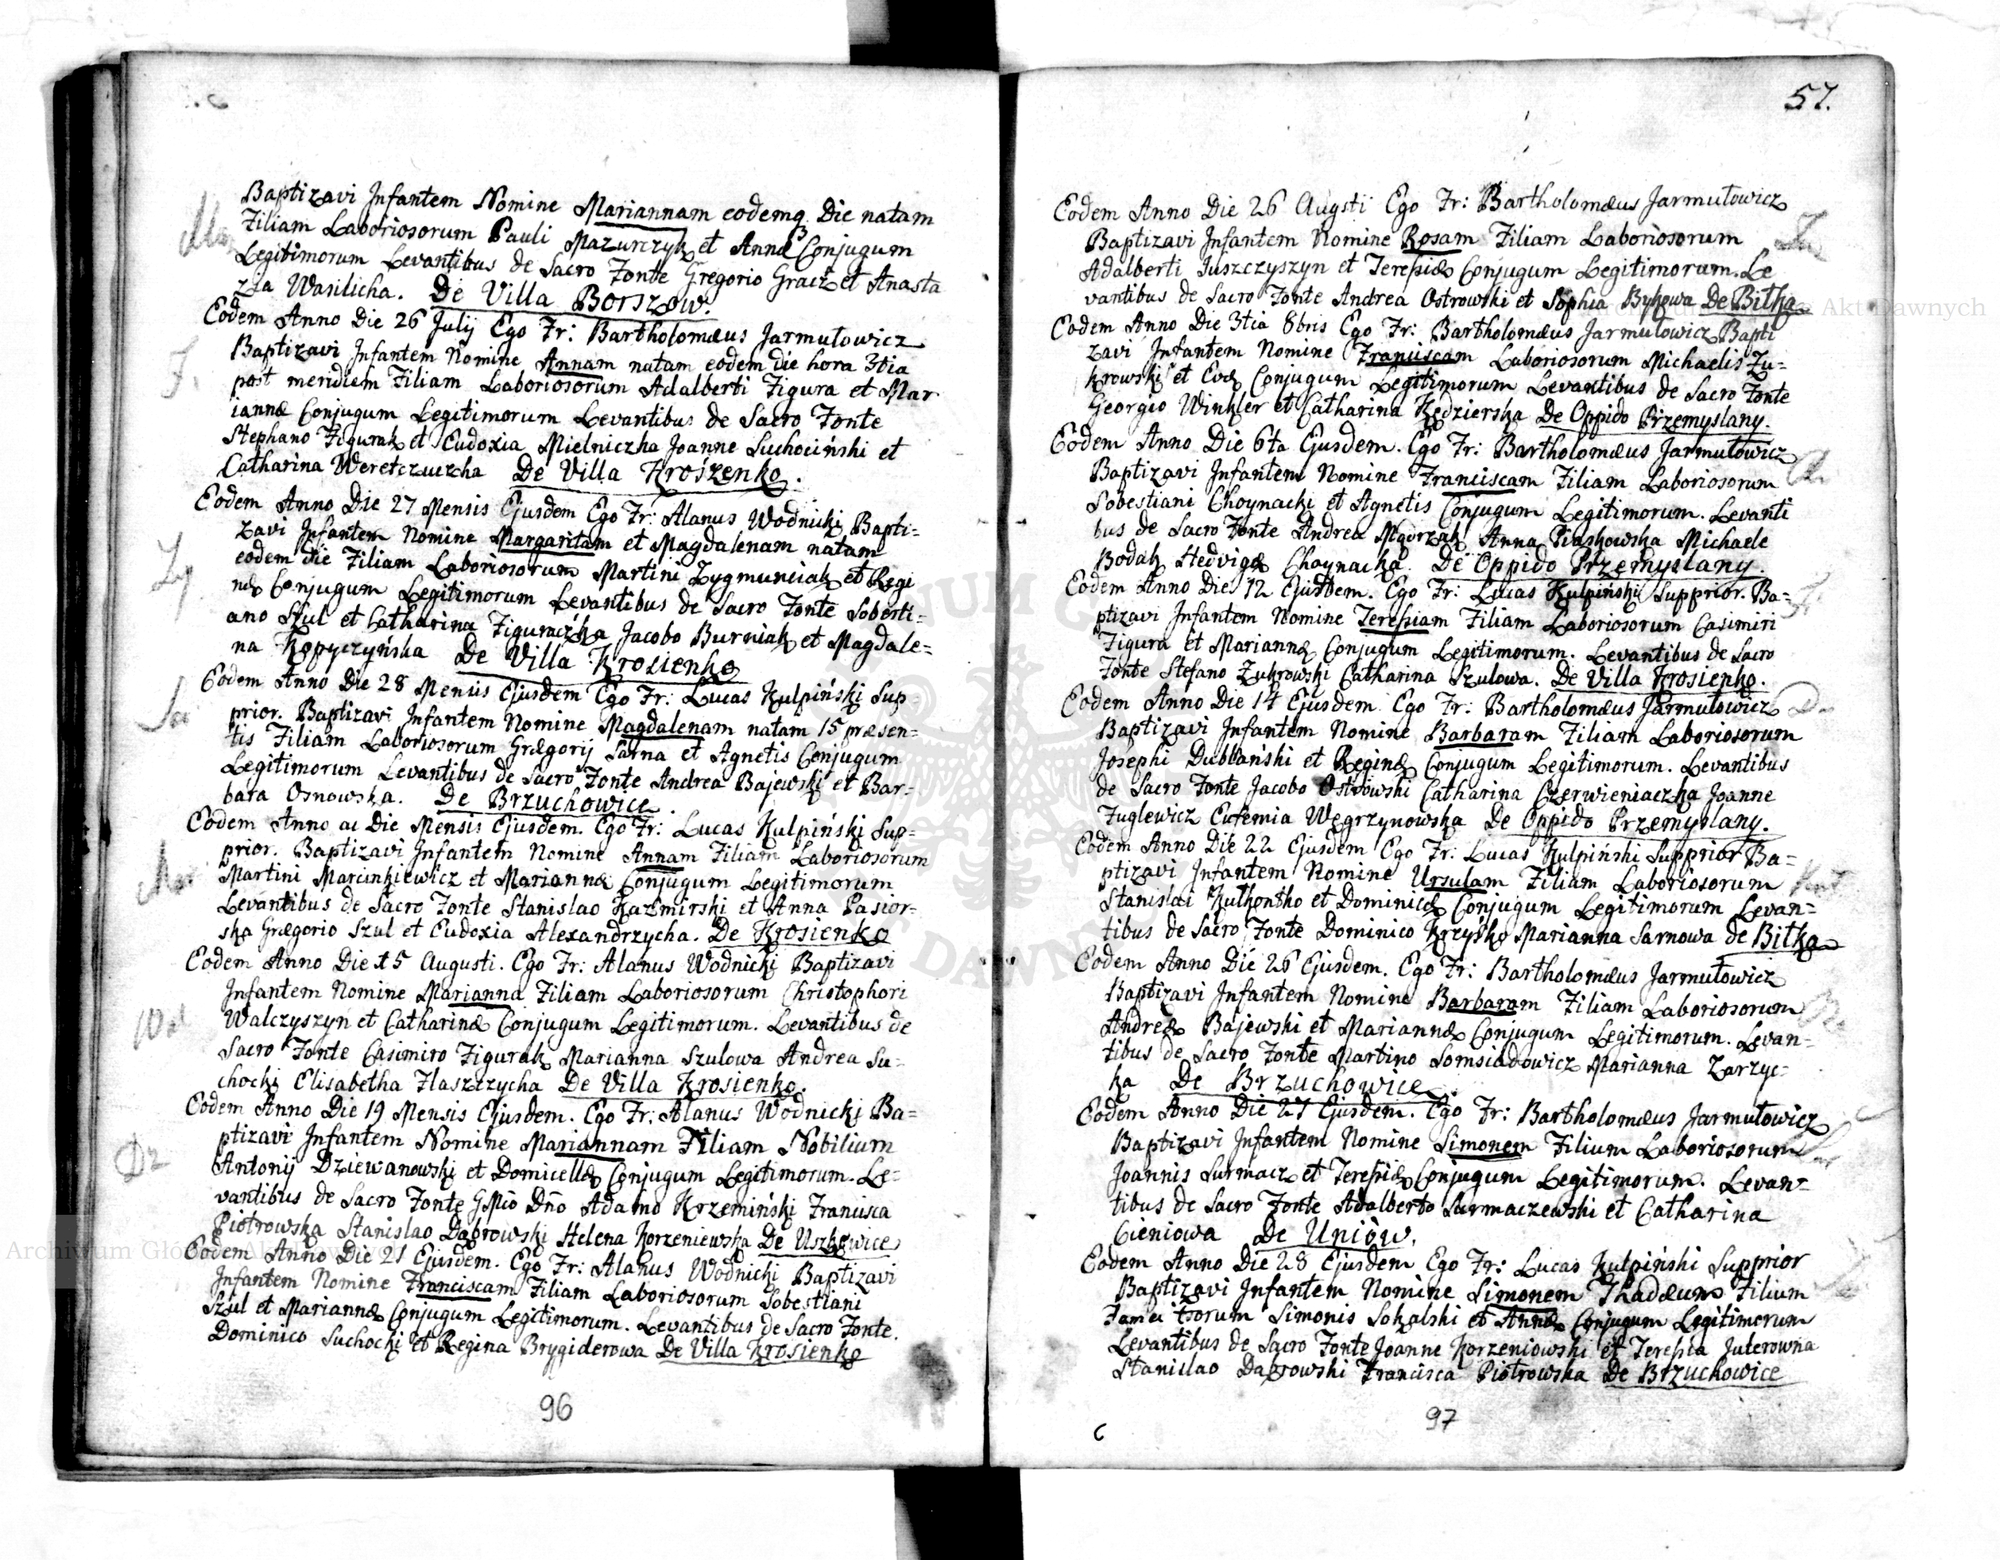 Baptizavi Infantem Nomine Mariannam eodemq. Die natam
Filiam Laboriosorum Pauli Mazurczyk et Annæ Conjugum
Legitimorum Levantibus de Sacro Fonte Gregorio Gracz et Anasta
zia Wasilicha. De Villa Borszow.
Eodem Anno Die 26 Julij Ego Fr: Bartholomæus Jarmułowicz
Baptizavi Infantem Nomine Annam natam eodem die hora 3tia
post meridiem Filiam Laboriosorum Adalberti Figura et Mar
iannæ Conjugum Legitimorum Levantibus de Sacro Fonte
Stephano Figurak et Eudoxia Mielniczka Joanne Suchociński et
Catharina Weretczuczka De Villa Kroszenko.
Eodem Anno Die 27 Mensis Ejusdem Ego Fr: Alanus Wodnicki Bapti=
zavi Infantem Nomine Margaritam et Magdalenam natam
eodem die Filiam Laboriosorum Martini Zygmunciak et Regi
næ Conjugum Legitimorum Levantibus de Sacro Fonte Soberti=
ano Szul et Catharina Figuraczka Jacobo Burniak et Magdale=
na Kopyczyńska De Villa Krosienko
Eodem Anno Die 28 Mensis Ejusdem Ego Fr: Lucas Kulpiński Sup=
prior. Baptizavi Infantem Nomine Magdalenam natam 15 præsen=
tis Filiam Laboriosorum Grægorij Sarna et Agnetis Conjugum
Legitimorum Levantibus de Sacro Fonte Andrea Bajewski et Bar=
bara Osnowska. De Brzuchowice.
Eodem Anno ac Die Mensis Ejusdem. Ego Fr: Lucas Kulpiński Sup=
prior. Baptizavi Infantem Nomine Annam Filiam Laboriosorum
Martini Marcinkiewicz et Mariannæ Conjugum Legitimorum
Levantibus de Sacro Fonte Stanislao Kazimirski et Anna Pasior=
ska Grægorio Szul et Eudoxia Alexandrzycha. De Krosienko
Eodem Anno Die 15 Augusti. Ego Fr: Alanus Wodnicki Baptizavi
Infantem Nomine Marianna Filiam Laboriosorum Christophori
Walczyszyn et Catharinæ Conjugum Legitimorum. Levantibus de
Sacro Fonte Casimiro Figurak Marianna Szulowa Andrea Su=
chocki Elisabetha Flaszczycha De Villa Krosienko.
Eodem Anno Die 19 Mensis Ejusdem. Ego Fr: Alanus Wodnicki Ba=
ptizavi Infantem Nomine Mariannam Filiam Nobilium
Antonij Dziewanowski et Domicellæ Conjugum Legitimorum. Le=
vantibus de Sacro Fonte Dño Adamo Krzemiński Francisca
Piotrowska Stanislao Dąbrowski Helena Korzeniewska De Uszkowice
Eodem Anno Die 21 Ejusdem. Ego Fr: Alanus Wodnicki Baptizavi
Infantem Nomine Franciscam Filiam Laboriosorum Sobestiani
Szul et Mariannæ Conjugum Legitimorum. Levantibus de Sacro Fonte.
Dominico Suchocki et Regina Brygiderowa De Villa Krosienko
96
57.
Eodem Anno Die 26 Augsti Ego Fr: Bartholomæus Jarmułowicz
Baptizavi Infantem Nomine Rosam Filiam Laboriosorum
Adalberti Juszczyszyn et Teresiæ Conjugum Legitimorum. Le
vantibus de Sacro Fonte Andrea Ostrowski et Sophia Bykowa De Bitka
Eodem Anno Die 3tia 8bris Ego Fr: Bartholomæus Jarmułowicz Bapti
zavi Infantem Nomine Franciscam Laboriosorum Michaelis Zu=
krowski et Evæ Conjugum Legitimorum Levantibus de Sacro Fonte
Georgio Winkler et Catharina Kędzierska De Oppido Przemyslany.
Eodem Anno Die 6ta Ejusdem. Ego Fr: Bartholomæus Jarmułowicz
Baptizavi Infantem Nomine Franciscam Filiam Laboriosorum
Sobestiani Choynacki et Agnetis Conjugum Legitimorum. Levanti
bus de Sacro Fonte Andrea Mgorzak Anna Piaskowska Michaele
Bodak Hedvigæ Choynacka. De Oppido Przemyslany.
Eodem Anno Die 12 Ejusdem. Ego Fr: Lucas Kulpiński Supprior. Ba=
ptizavi Infantem Nomine Teresiam Filiam Laboriosorum Casimiri
Figura et Mariannæ Conjugum Legitimorum. Levantibus de Sacro
Fonte Stefano Zukrowski Catharina Szulowa. De Villa Krosienko.
Eodem Anno Die 14 Ejusdem. Ego Fr: Bartholomæus Jarmułowicz
Baptizavi Infantem Nomine Barbaram Filiam Laboriosorum
Josephi Dublański et Reginæ Conjugum Legitimorum. Levantibus
de Sacro Fonte Jacobo Ostrowski Catharina Czerwieniaczka Joanne
Fuglewicz Eufemia Węgrzynowska De Oppido Przemyslany.
Eodem Anno Die 22 Ejusdem Ego Fr: Lucas Kulpiński Supprior Ba=
ptizavi Infantem Nomine Ursulam Filiam Laboriosorum
Stanislai Kutkontko et Dominicæ Conjugum Legitimorum Levan=
tibus de Sacro Fonte Dominico Krzysko Marianna Sarnowa de Bitka
Eodem Anno Die 26 Ejusdem. Ego Fr: Bartholomæus Jarmułowicz
Baptizavi Infantem Nomine Barbaram Filiam Laboriosorum
Andreæ Bajewski et Mariannæ Conjugum Legitimorum. Levan=
tibus de Sacro Fonte Martino Somsiadowicz Marianna Zarzyc=
ka De Brzuchowice.
Eodem Anno Die 27 Ejusdem. Ego Fr: Bartholomæus Jarmułowicz
Baptizavi Infantem Nomine Simonem Filium Laboriosorum
Joannis Surmacz et Teresiæ Conjugum Legitimorum. Levan=
tibus de Sacro Fonte Adalberto Surmaczewski et Catharina
Cieniowa De Uniów.
Eodem Anno Die 28 Ejusdem Ego Fr: Lucas Kulpiński Supprior
Baptizavi Infantem Nomine Simonem Thadæum Filium
Famei torum Simonis Sokalski et Annæ Conjugum Legitimorum
Levantibus de Sacro Fonte Joanne Korzeniowski et Teresia Juterowna
Stanislao Dąbrowski Francisca Piotrowska De Brzuchowice
97